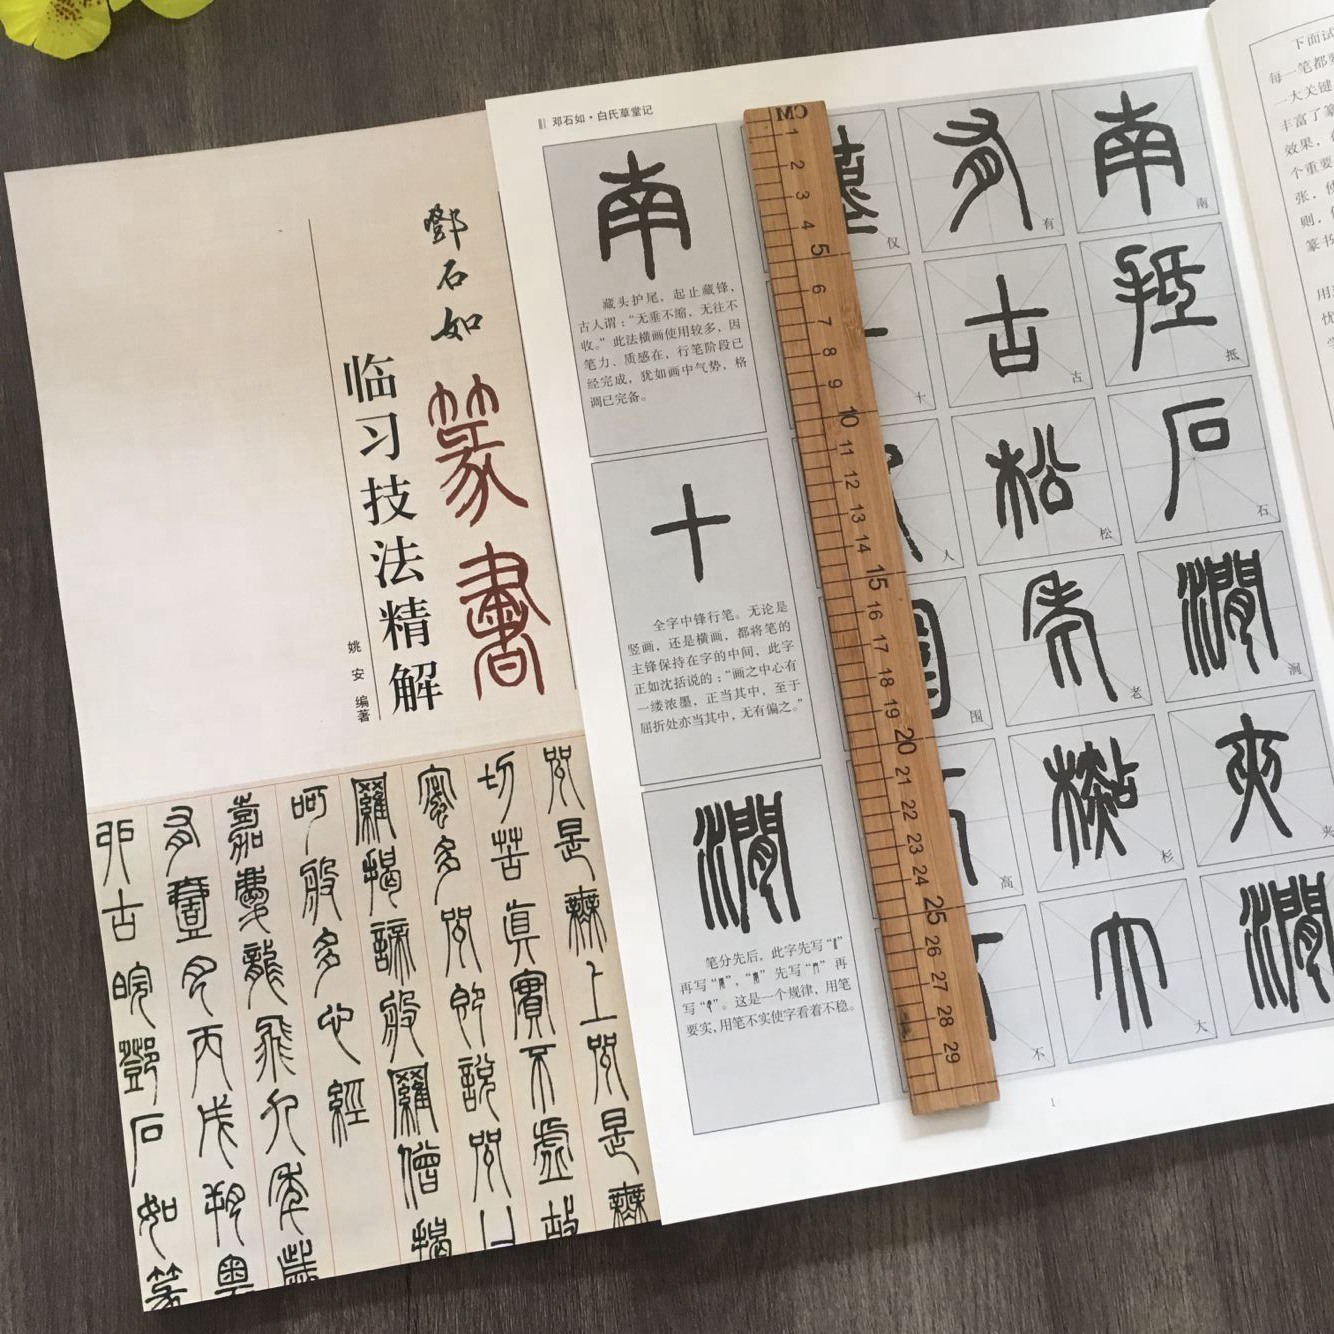 鄧石如
篆書
临习技法精解
姚安 编著
邓石如·白氏草堂记
南
藏头护尾，起止藏锋，
古人谓：“无垂不缩、无往不
收。”此法横画使用较多，因
笔力、质感在，行笔阶段已
经完成，犹如画中气势，格
调已完备。
十
全字中锋行笔。无论是
竖画，还是横画，都将笔的
主锋保持在字的中间，此字
正如沈括说的：“画之中心有
一缕浓墨，正当其中，至于
屈折处亦当其中，无有偏之。”
澗
笔分先后，此字先写“
再写“”，“”先写“”再
写“”。这是一个规律，用笔
要实，用笔不实使字看着不稳。
南 南
抵 抵
石 石
澗 涧
夾 夹
澗
有 有
古 古
松 松
老 老
杉
大 大
仅
十
人
围
高
不
1
CM
1 2 3 4 5 6 7 8 9 10 11 12 13 14 15 16 17 18 19 20 21 22 23 24 25 26 27 28 29
下面试
每一笔都
一大关键
丰富了篆
效果，
个重要
张，使
则，
篆书
呪是無上呪是無
切苦真實不虛故
蜜多呪即說呪曰
羅揭諦般羅僧揭
呵般多心經
嘉慶龍飛九年歲
有
邛古皖鄧石如篆